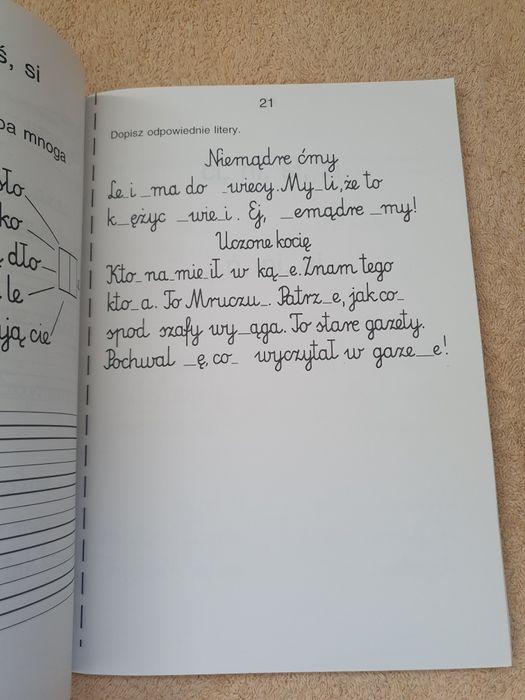 ś, si
ba mnoga
sło
ko
dło
le
ją cie
21
Dopisz odpowiednie litery.
Niemądre ćmy
Le_i _ma do _wiecy. My_li, że to
k_ężyc _wie_i. Ej, _emądre _my!
Uczone kocię
Kto_ na_mie_ił w ką_e. Znam tego
kto_a. To Mruczu_. Patrz_e, jak co_
spod szafy wy_ąga. To stare gazety.
Pochwal _ę, co_ wyczytał w gaze_e!